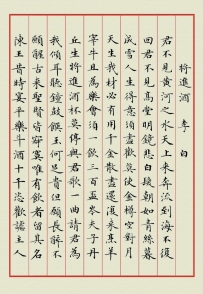 將進酒 李白
君不見黃河之水天上來奔流到海不復
回君不見高堂明鏡悲白髮朝如青絲暮
成雪人生得意須盡歡莫使金樽空對月
天生我材必有用千金散盡還復來烹羊
宰牛且為樂會須一飲三百杯岑夫子丹
丘生將進酒杯莫停與君歌一曲請君為
我傾耳聽鐘鼓饌玉何足貴但願長醉不
願醒古來聖賢皆寂寞唯有飲者留其名
陳王昔時宴平樂斗酒十千恣歡謔主人